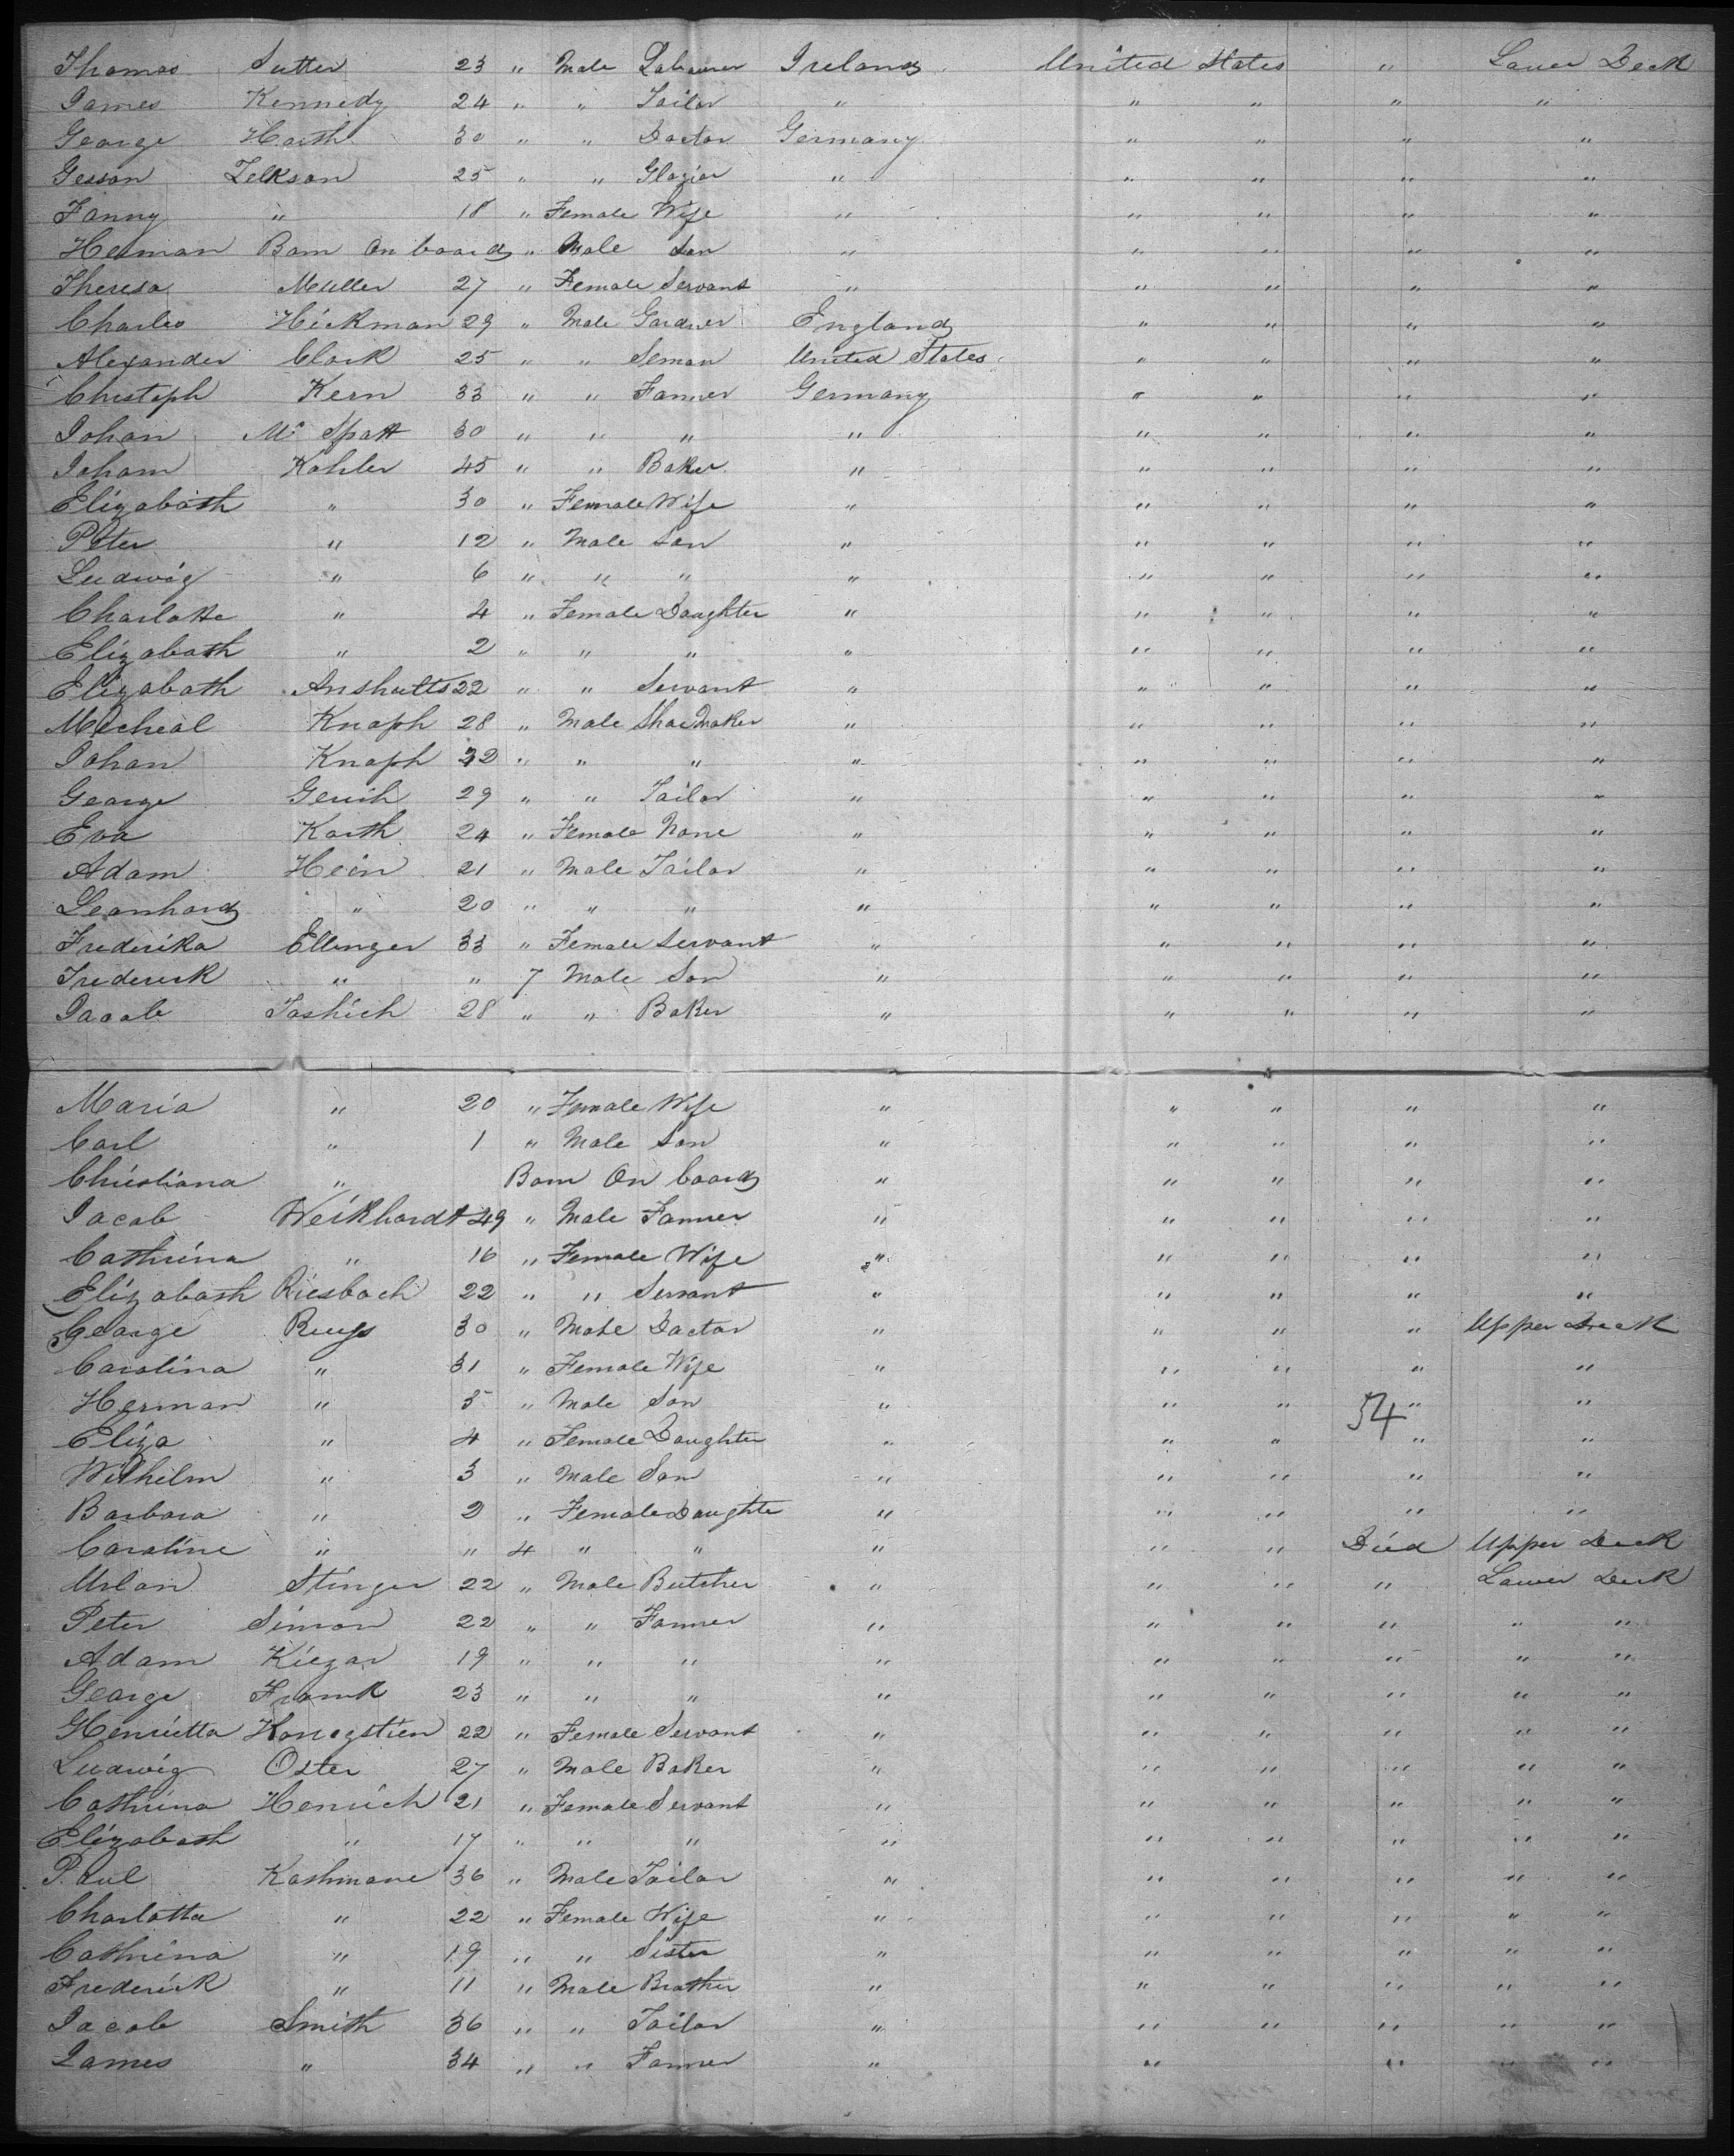 Thomas Sutter 23 " Male Labourer Ireland United States " Lower Deck
James Kennedy 24 " " Tailor " " " " "
George Harth 30 " " Doctor Germany " " " "
Gesson Zelkson 25 " " Glazier " " " " "
Fanny " 18 " Female Wife " " " " "
Herman Born On board " Male Son " " " " "
Theresa Muller 27 " Female Servant " " " " "
Charles Hickman 29 " Male Gardner England " " " "
Alexander Clark 25 " " Seman United States " " " "
Chistoph Kern 33 " " Farmer Germany " " " "
Johan Mc Spatt 30 " " " " " " " "
Joham Kohler 45 " " Baker " " " " "
Elizabath " 30 " Female Wife " " " " "
Peter " 12 " Male Son " " " " "
Ludwig " 6 " " " " " " " "
Charlotte " 4 " Female Daughter " " " " "
Elizabath " 2 " " " " " " " "
Elizabath Anshutts 22 " " Servant " " " " "
Micheal Knaph 28 " Male Shoe Maker " " " " "
Johan Knaph 32 " " " " " " " "
George Gerich 29 " " Tailor " " " " "
Eva Karth 24 " Female None " " " " "
Adam Hein 21 " Male Tailor " " " " "
Leonhard " 20 " " " " " " " "
Frederika Ellinger 33 " Female Servant " " " " "
Frederick " " 7 Male Son " " " " "
Jacob Joshich 28 " " Baker " " " " "
Maria " 20 " Female Wife " " " " "
Carl " 1 " Male Son " " " " "
Christiana " Born On board " " " " "
Jacob Weikhardt 49 " Male Farmer " " " " "
Cathrina " 16 " Female Wife " " " " "
Elizabath Riesbach 22 " " Servant " " " " "
George 30 " Male Doctor " " " " Upper Deck
Carolina " 31 " Female Wife " " " " "
Herman " 5 " Male Son " " " 54 " "
Eliza " 4 " Female Daughter " " " " "
Wilhelm " 3 " Male Son " " " " "
Barbara " 2 " Female Daughte " " " " "
Caroline " " 4 " " " " " Died Upper Deck
Urban Stinger 22 " Male Butcher " " " " Lower Deck
Peter Simon 22 " " Farmer " " " " " "
Adam Kiezar 19 " " " " " " " " "
George Frank 23 " " " " " " " " "
Henrietta Konegstien 22 " Female Servant " " " " " "
Ludwig Oster 27 " Male Baker " " " " " "
Cathrina Henrich 21 " Female Servant " " " " " "
Elizabath " 17 " " " " " " " " "
Paul Kashmane 36 " Male Tailor " " " " " "
Charlotta " 22 " Female Wife " " " " " "
Cathrina " 19 " " Sister " " " " " "
Frederick " 11 " Male Brother " " " " " "
Jacob Smith 36 " " Tailor " " " " " "
James " 34 " " Farmer " " " " "